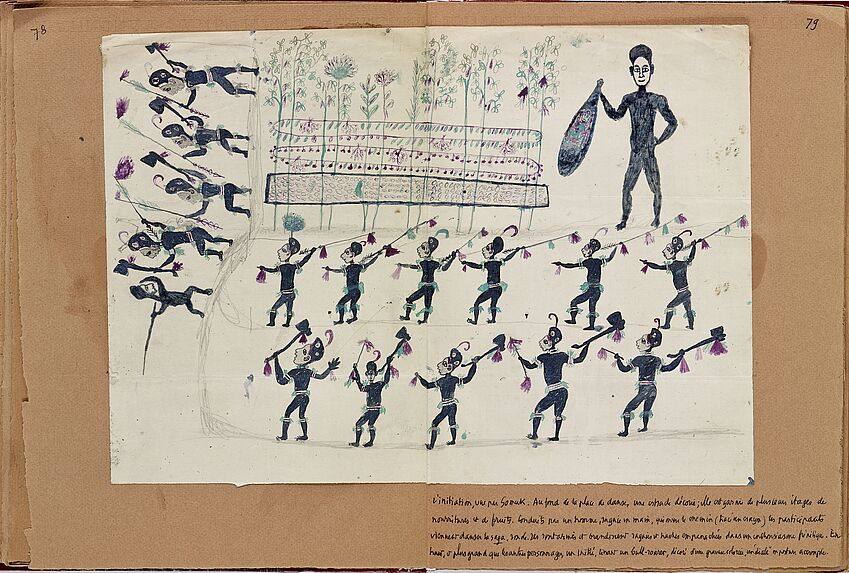 78
79
l'initiation, vue par Somuk. Au fond de la place de danse, une estrade décorée; elle est garnie de plusieurs étages de
nourritures et de fruits. Conduits par un homme, sagaie en main, qui ouvre le chemin (trait au crayon) les participants
viennent danser la ronde. Ils sont armés et brandissent sagaies et haches emmanchées dans un enthousiasme frénétique. En
haut, et plus grand que les autres personnages, un Initié, tenant un bull-roarer, décoré d'une gravure coloriée